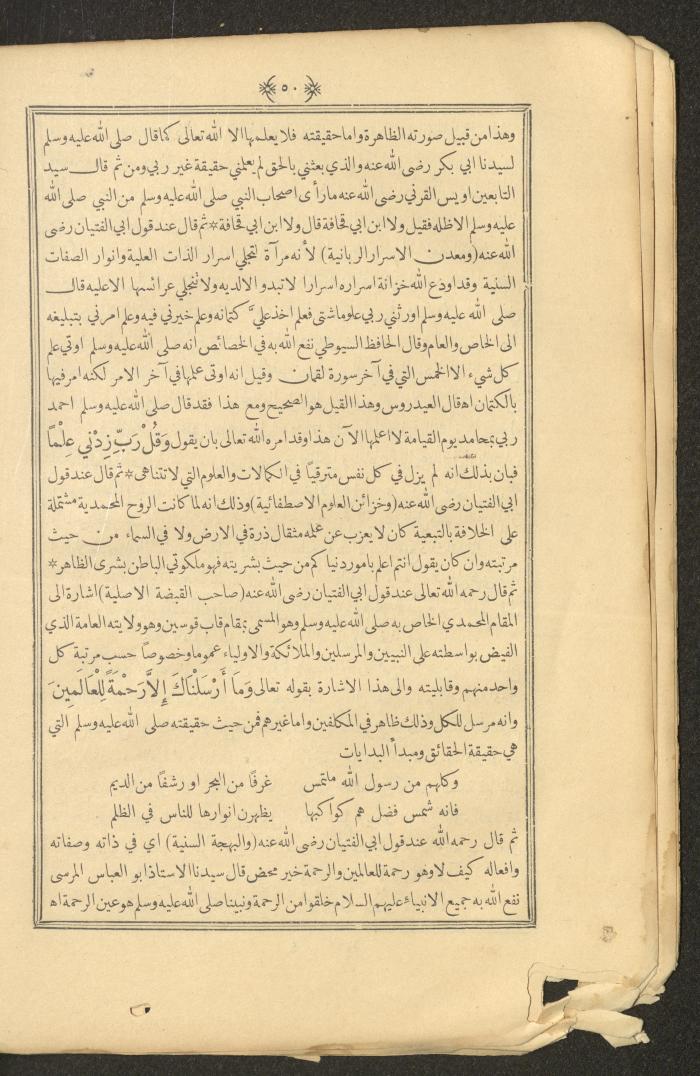 ﴿٥٠﴾
وهذا من قبيل صورته الظاهرة واما حقيقته فلا يعلمها الا الله تعالى كما قال صلى الله عليه وسلم
لسيدنا ابي بكر رضى الله عنه والذي بعثني بالحق لم يعلمني حقيقة غير ربي ومن ثم قال سيد
التابعين اويس القرني رضى الله عنه ما رأى اصحاب النبي صلى الله عليه وسلم من النبي صلى الله
عليه وسلم الا ظله فقيل ولا ابن ابي قحافة قال ولا ابن ابي قحافة * ثم قال عند قول ابي الفتيان رضى
الله عنه (ومعدن الاسرار الربانية) لأنه مرآة لتجلي اسرار الذات العلية وانوار الصفات
السنية وقد اودع الله خزانة اسراره اسرارا لا تبدو الا لديه ولا تنجلي عرائسها الا عليه قال
صلى الله عليه وسلم اورثني ربي علوما شتى فعلم اخذ عليَّ كتمانه وعلم خيرني فيه وعلم امرني بتبليغه
الى الخاص والعام وقال الحافظ السيوطي نفع الله به في الخصائص انه صلى الله عليه وسلم اوتي علم
كل شيء الا الخمس التي في آخر سورة لقان وقيل انه اوتى علمها في آخر الامر لكنه امر فيها
بالكتمان اه قال العيدروس وهذا القيل هو الصحيح ومع هذا فقد قال صلى الله عليه وسلم احمد
ربي بمحامد يوم القيامة لا اعلمها الآن هذا وقد امره الله تعالى بان يقول وَقُلْ رَبِّ زِدْنِي عِلْمًا
فبان بذلك انه لم يزل في كل نفس مترقيًا في الكمالات والعلوم التي لا تتناهى * ثم قال عند قول
ابي الفتيان رضى الله عنه (وخزائن العلوم الاصطفائية) وذلك انه لما كانت الروح المحمدية مشتملة
على الخلافة بالتبعية كان لا يعزب عن علمه مثقال ذرة في الارض ولا في السماء من حيث
مرتبته وان كان يقول انتم اعلم بامور دنياكم من حيث بشريته فهو ملكوتي الباطن بشرى الظاهر *
ثم قال رحمه الله تعالى عند قول ابي الفتيان رضى الله عنه (صاحب القبضة الاصلية) اشارة الى
المقام المحمدي الخاص به صلى الله عليه وسلم وهو المسمى بمقام قاب قوسين وهو ولايته العامة الذي
الفيض بواسطته على النبيين والمرسلين والملائكة والاولياء عموما وخصوصًا حسب مرتبة كل
واحد منهم وقابليته والى هذا الاشارة بقوله تعالى وَمَا أَرْسَلْنَاكَ إِلاَّ رَحْمَةً لِلْعَالَمِينَ
وانه مرسل للكل وذلك ظاهر في المكلفين واما غيرهم فمن حيث حقيقته صلى الله عليه وسلم التي
هي حقيقة الحقائق ومبدأ البدايات
وكلهم من رسول الله ملتمس غرفًا من البحر او رشفًا من الديم
فانه شمس فضل هم كواكبها يظهرن انوارها للناس في الظلم
ثم قال رحمه الله عند قول ابي الفتيان رضى الله عنه (والبهجة السنية) اي في ذاته وصفاته
وافعاله كيف لا وهو رحمة للعالمين والرحمة خير محض قال سيدنا الاستاذ ابو العباس المرسى
نفع الله به جميع الانبياء عليهم السلام خلقوا من الرحمة ونبينا صلى الله عليه وسلم هو عين الرحمة اه